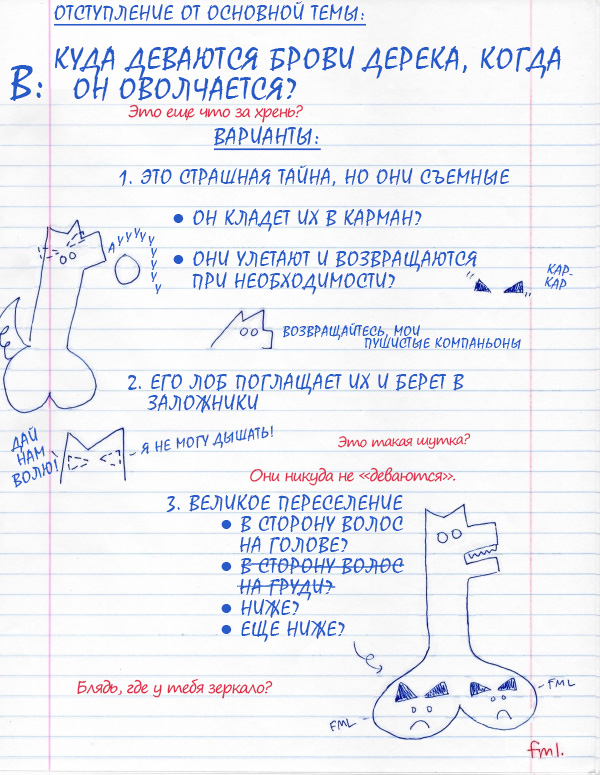 ОТСТУПЛЕНИЕ ОТ ОСНОВНОЙ ТЕМЫ:
В: КУДА ДЕВАЮТСЯ БРОВИ ДЕРЕКА, КОГДА
ОН ОВОЛЧАЕТСЯ?
Это еще что за хрень?
ВАРИАНТЫ:
1. ЭТО СТРАШНАЯ ТАЙНА, НО ОНИ СЪЕМНЫЕ
• ОН КЛАДЕТ ИХ В КАРМАН?
АУУУУУУУУ
• ОНИ УЛЕТАЮТ И ВОЗВРАЩАЮТСЯ
ПРИ НЕОБХОДИМОСТИ?
КАР-
КАР
ВОЗВРАЩАЙТЕСЬ, МОИ
ПУШИСТЫЕ КОМПАНЬОНЫ
2. ЕГО ЛОБ ПОГЛОЩАЕТ ИХ И БЕРЕТ В
ЗАЛОЖНИКИ
ДАЙ
НАМ
ВОЛЮ!
- Я НЕ МОГУ ДЫШАТЬ!
Это такая шутка?
Они никуда не «деваются».
3. ВЕЛИКОЕ ПЕРЕСЕЛЕНИЕ
• В СТОРОНУ ВОЛОС
НА ГОЛОВЕ?
• В СТОРОНУ ВОЛОС
НА ГРУДИ?
• НИЖЕ?
• ЕЩЕ НИЖЕ?
Блядь, где у тебя зеркало?
FML
FML
fml.